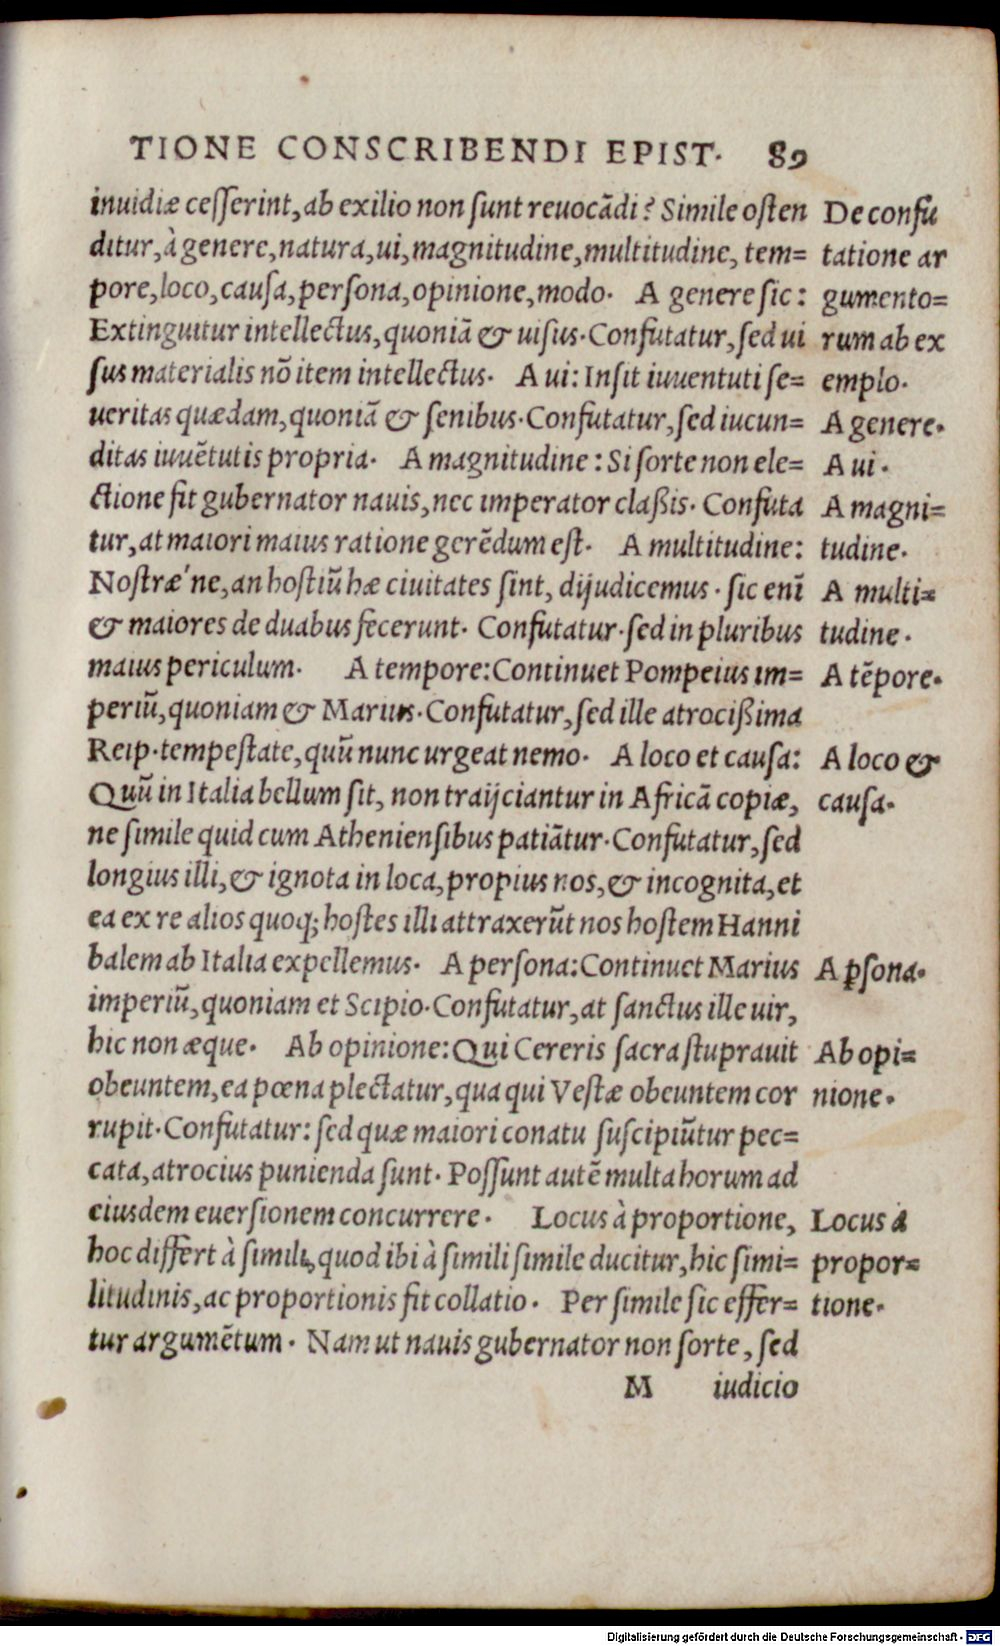 TIONE CONSCRIBENDI EPIST. 89
inuidiæ cesserint, ab exilio non sunt reuocādi? Simile osten
ditur, à genere, natura, ui, magnitudine, multitudine, tem=
pore, loco, causa, persona, opinione, modo. A genere sic:
Extinguitur intellectus, quoniā & uisus. Confutatur, sed ui
sus materialis nō item intellectus. A ui: Insit iuuentuti se=
ueritas quædam, quoniā & senibus. Confutatur, sed iucun=
ditas iuuētutis propria. A magnitudine: Si sorte non ele=
ctione fit gubernator nauis, nec imperator claßis. Confuta
tur, at maiori maius ratione gerēdum est. A multitudine:
Nostræ'ne, an hostiū hæ ciuitates sint, dijudicemus. sic enī
& maiores de duabus fecerunt. Confutatur. sed in pluribus
maius periculum. A tempore: Continuet Pompeius im=
periū, quoniam & Marius. Confutatur, sed ille atrocißima
Reip. tempestate, quū nunc urgeat nemo. A loco et causa:
Quū in Italia bellum sit, non traijciantur in Africā copiæ,
ne simile quid cum Atheniensibus patiātur. Confutatur, sed
longius illi, & ignota in loca, propius nos, & incognita, et
ea ex re alios quoq; hostes illi attraxerūt nos hostem Hanni
balem ab Italia expellemus. A persona: Continuet Marius
imperiū, quoniam et Scipio. Confutatur, at sanctus ille uir,
hic non æque. Ab opinione: Qui Cereris sacra stuprauit
obeuntem, ea pœna plectatur, qua qui Vestæ obeuntem cor
rupit. Confutatur: sed quæ maiori conatu suscipiūtur pec=
cata, atrocius punienda sunt. Possunt autē multa horum ad
eiusdem euersionem concurrere. Locus à proportione,
hoc differt à simili, quod ibi à simili simile ducitur, hic simi=
litudinis, ac proportionis fit collatio. Per simile sic effer=
tur argumētum. Nam ut nauis gubernator non sorte, sed
M iudicio
De confu
tatione ar
gumento=
rum ab ex
emplo.
A genere.
A ui.
A magni=
tudine.
A multi=
tudine.
A tēpore.
A loco &
causa.
A ꝑsona.
Ab opi=
nione.
Locus à
propor=
tione.
Digitalisierung gefördert durch die Deutsche Forschungsgemeinschaft - DFG